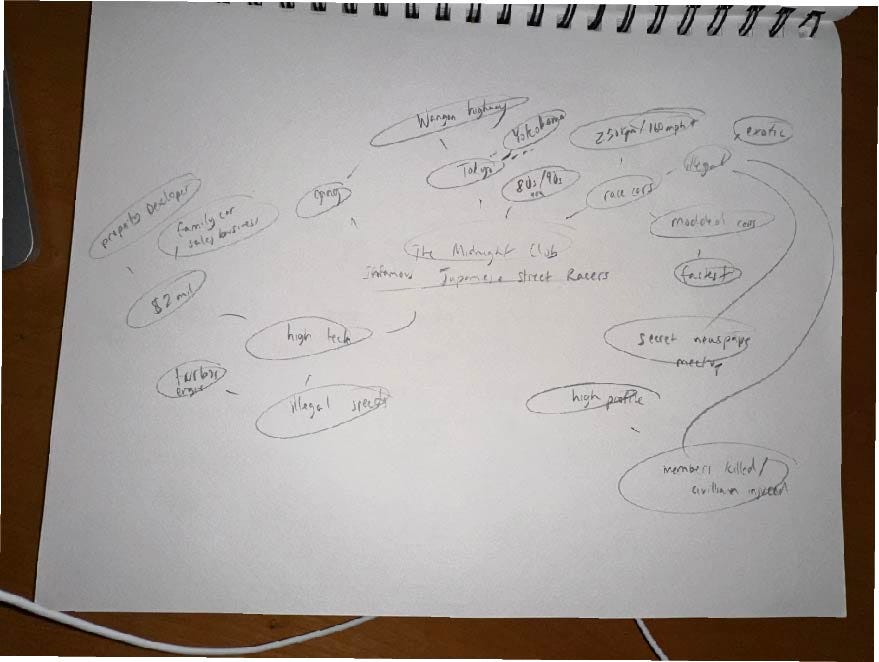 Wangan highway
Yokohama
250kpm/160mph+
exotic
illegal
Tokyo
80s/90s
race cars
gang
property Developer
family car
sales business
modded cars
The Midnight Club
Infamous Japanese Street Racers
fastest
$2 mil
high tech
secret newspape
meetup
turbo
engine
illegal speeds
high profile
members killed/
civilian injured